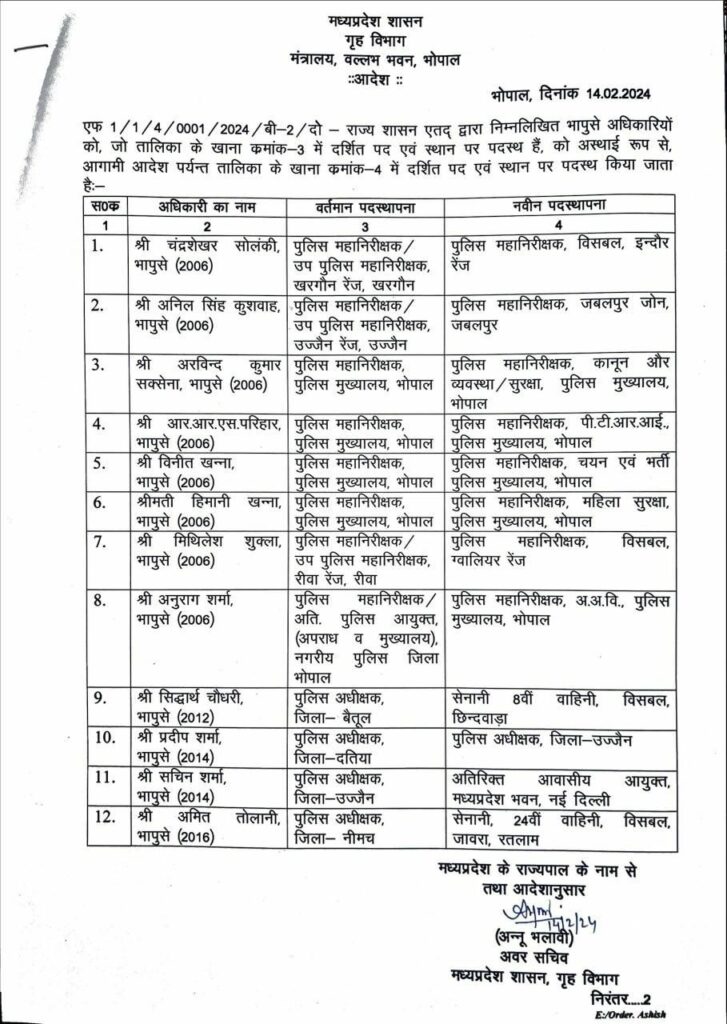 मध्यप्रदेश शासन
गृह विभाग
मंत्रालय, वल्लभ भवन, भोपाल
::आदेश ::
भोपाल, दिनांक 14.02.2024
एफ 1/1/4/0001/2024/बी–2/दो – राज्य शासन एतद् द्वारा निम्नलिखित भापुसे अधिकारियों
को, जो तालिका के खाना क्रमांक–3 में दर्शित पद एवं स्थान पर पदस्थ हैं, को अस्थाई रूप से,
आगामी आदेश पर्यन्त तालिका के खाना क्रमांक–4 में दर्शित पद एवं स्थान पर पदस्थ किया जाता
है:–
स0क्र अधिकारी का नाम वर्तमान पदस्थापना नवीन पदस्थापना
1 2 3 4
1. श्री चंद्रशेखर सोलंकी, पुलिस महानिरीक्षक/ पुलिस महानिरीक्षक, विसबल, इन्दौर
भापुसे (2006) उप पुलिस महानिरीक्षक, रेंज
खरगौन रेंज, खरगौन
2. श्री अनिल सिंह कुशवाह, पुलिस महानिरीक्षक/ पुलिस महानिरीक्षक, जबलपुर जोन,
भापुसे (2006) उप पुलिस महानिरीक्षक, जबलपुर
उज्जैन रेंज, उज्जैन
3. श्री अरविन्द कुमार पुलिस महानिरीक्षक, पुलिस महानिरीक्षक, कानून और
सक्सेना, भापुसे (2006) पुलिस मुख्यालय, भोपाल व्यवस्था/सुरक्षा, पुलिस मुख्यालय,
भोपाल
4. श्री आर.आर.एस.परिहार, पुलिस महानिरीक्षक, पुलिस महानिरीक्षक, पी.टी.आर.आई.,
भापुसे (2006) पुलिस मुख्यालय, भोपाल पुलिस मुख्यालय, भोपाल
5. श्री विनीत खन्ना, पुलिस महानिरीक्षक, पुलिस महानिरीक्षक, चयन एवं भर्ती
भापुसे (2006) पुलिस मुख्यालय, भोपाल पुलिस मुख्यालय, भोपाल
6. श्रीमती हिमानी खन्ना, पुलिस महानिरीक्षक, पुलिस महानिरीक्षक, महिला सुरक्षा,
भापुसे (2006) पुलिस मुख्यालय, भोपाल पुलिस मुख्यालय, भोपाल
7. श्री मिथिलेश शुक्ला, पुलिस महानिरीक्षक/ पुलिस महानिरीक्षक, विसबल,
भापुसे (2006) उप पुलिस महानिरीक्षक, ग्वालियर रेंज
रीवा रेंज, रीवा
8. श्री अनुराग शर्मा, पुलिस महानिरीक्षक/ पुलिस महानिरीक्षक, अ.अ.वि., पुलिस
भापुसे (2006) अति. पुलिस आयुक्त, मुख्यालय, भोपाल
(अपराध व मुख्यालय),
नगरीय पुलिस जिला
भोपाल
9. श्री सिद्धार्थ चौधरी, पुलिस अधीक्षक, सेनानी 8वीं वाहिनी, विसबल,
भापुसे (2012) जिला– बैतूल छिन्दवाड़ा
10. श्री प्रदीप शर्मा, पुलिस अधीक्षक, पुलिस अधीक्षक, जिला–उज्जैन
भापुसे (2014) जिला–दतिया
11. श्री सचिन शर्मा, पुलिस अधीक्षक, अतिरिक्त आवासीय आयुक्त,
भापुसे (2014) जिला–उज्जैन मध्यप्रदेश भवन, नई दिल्ली
12. श्री अमित तोलानी, पुलिस अधीक्षक, सेनानी, 24वीं वाहिनी, विसबल,
भापुसे (2016) जिला– नीमच जावरा, रतलाम
मध्यप्रदेश के राज्यपाल के नाम से
तथा आदेशानुसार
14/2/24
(अन्नू भलावी)
अवर सचिव
मध्यप्रदेश शासन, गृह विभाग
निरंतर.....2
E:/Order. Ashish